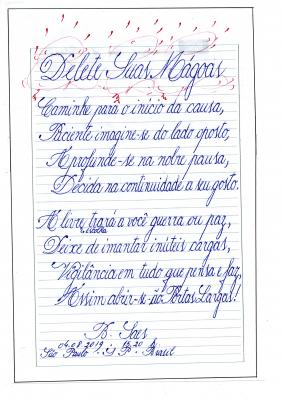 Delete Suas Mágoas
Caminhe para o início da causa,
Paciente imagine-se do lado oposto,
Aprofunde-se na nobre pausa,
Decida na continuidade a seu gosto.
A livre escolha trará a você guerra ou paz,
Deixe de imantar inúteis cargas,
Vigilância em tudo que pensa e faz,
Assim abrir-se-ão Portas Largas!
B. Saes
04.08.2019 - 13:20 h
São Paulo - S.P. - Brasil